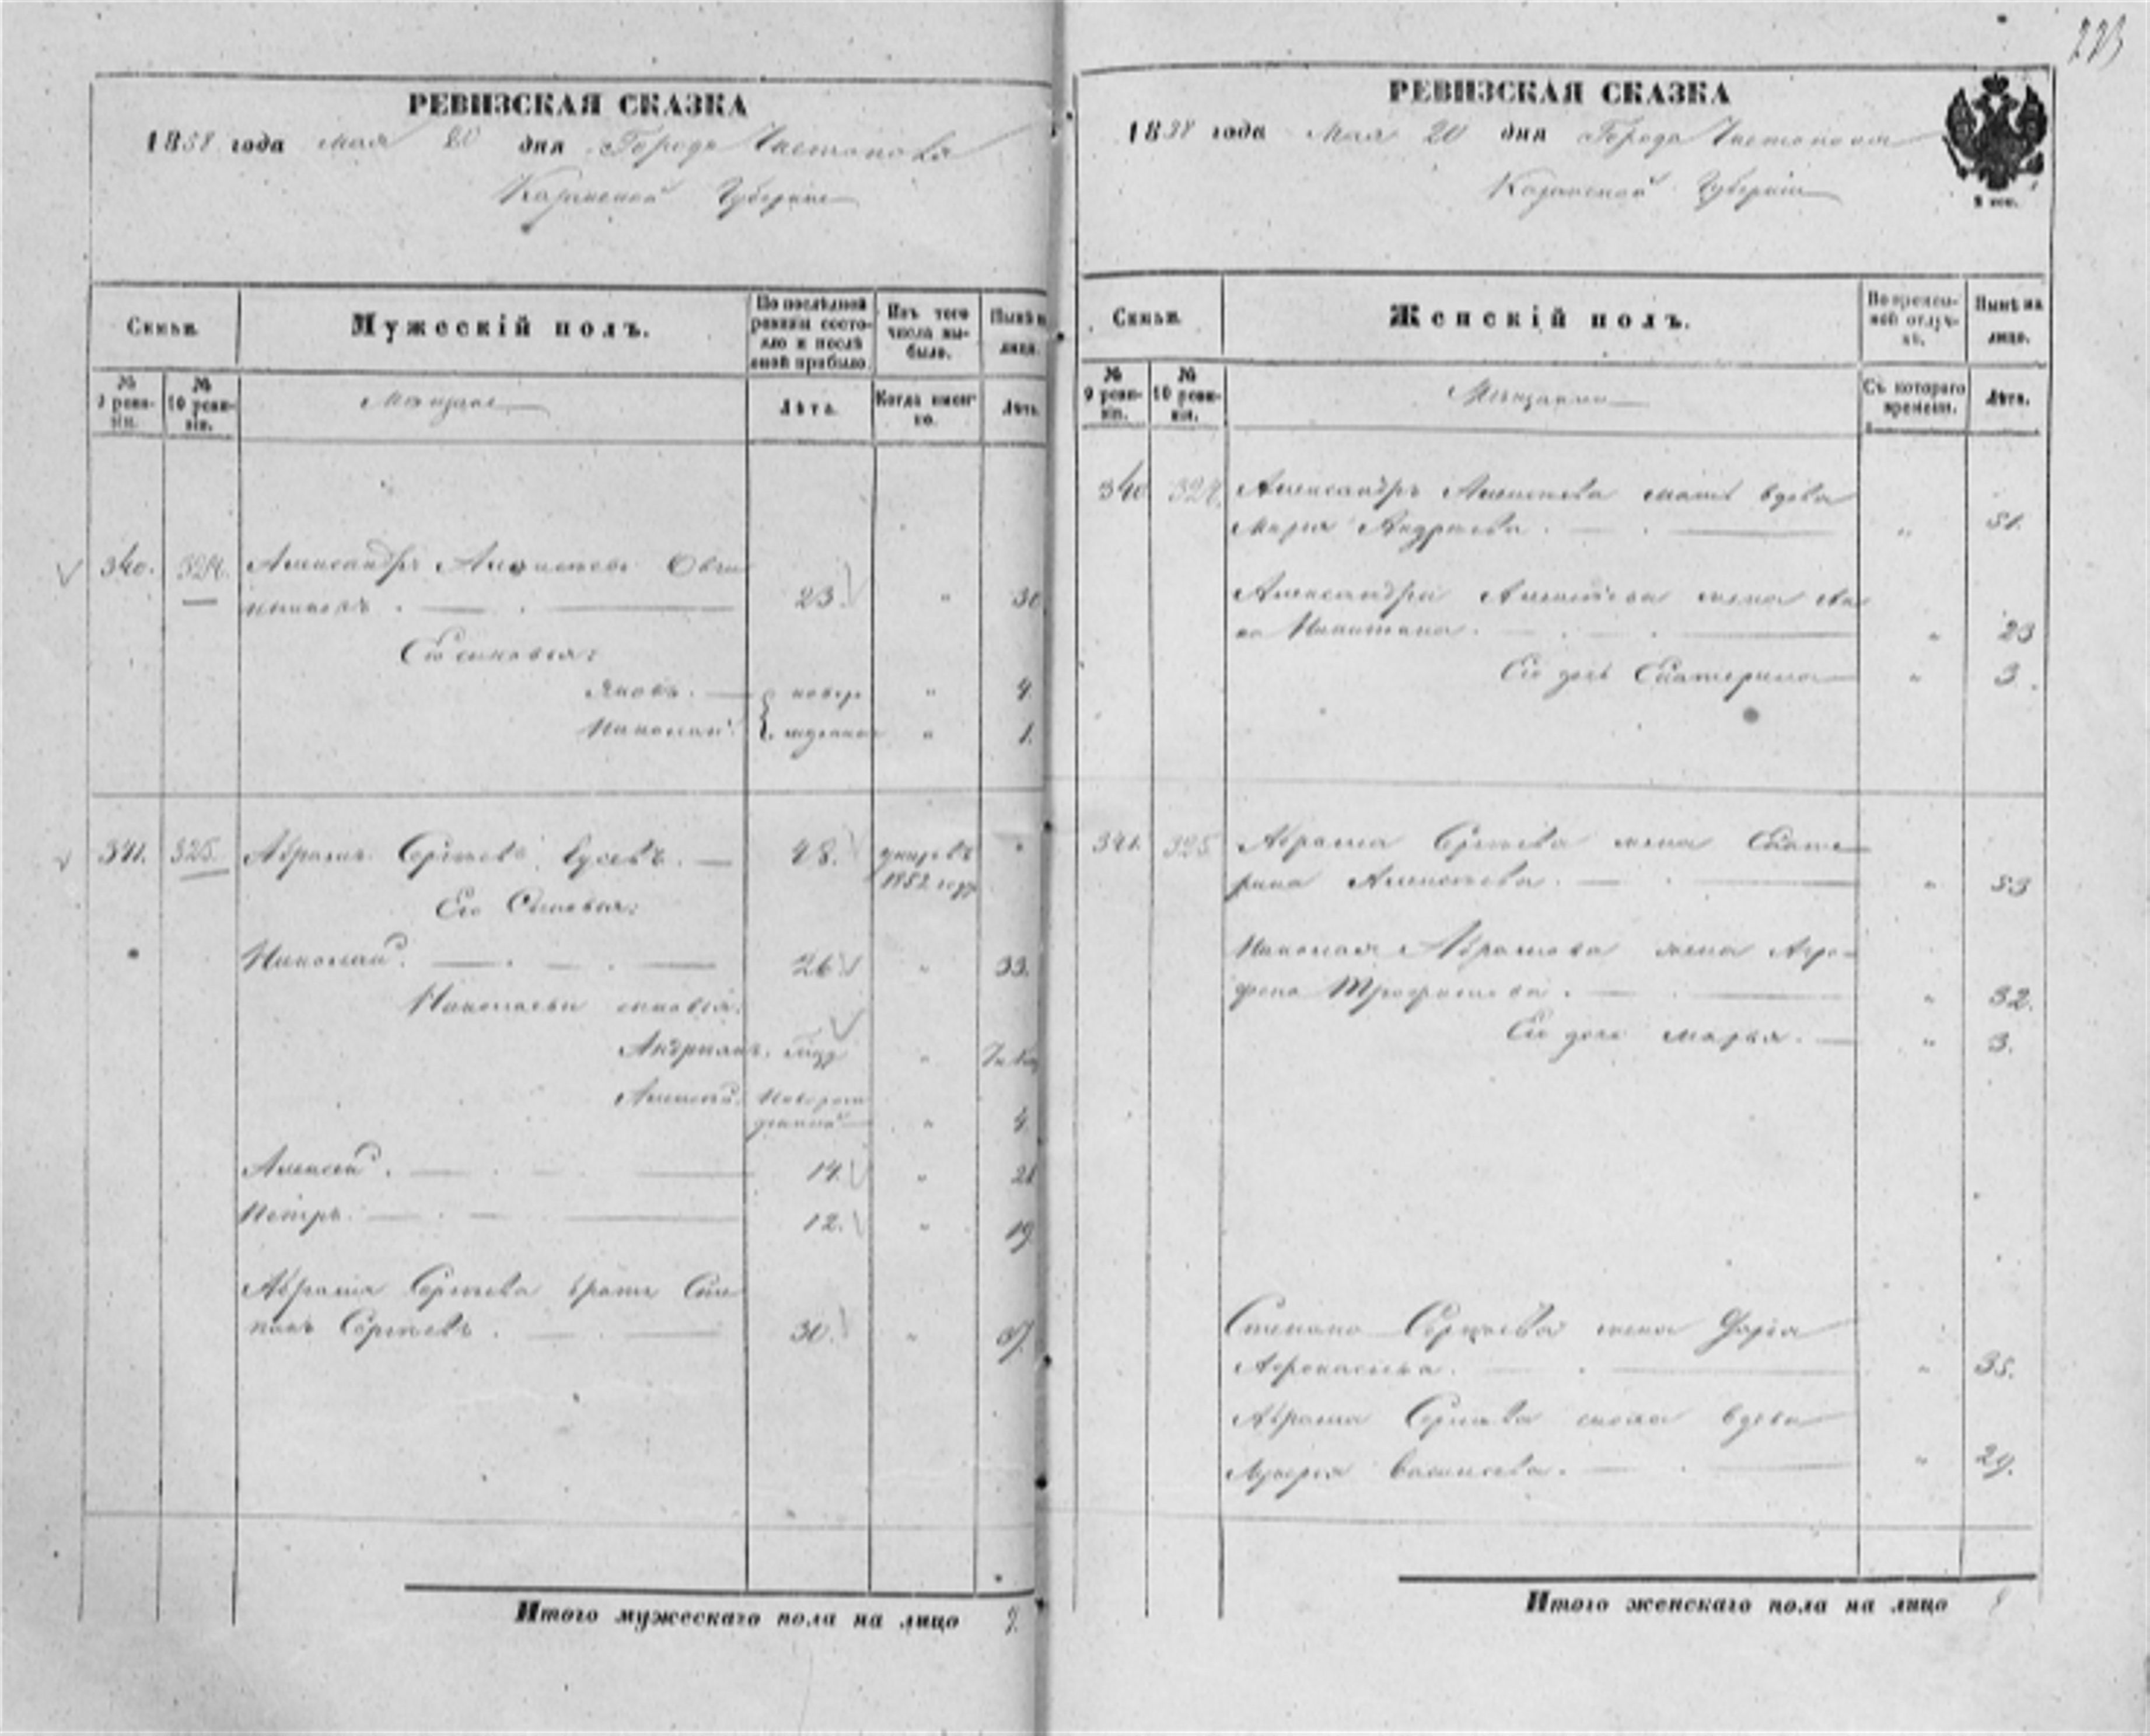 223
РЕВИЗСКАЯ СКАЗКА
1858 года мая 20 дня Города Чистополя
Казанской Губернии
Семьи.
Мужескій полъ.
По послѣдней ревизіи состояло и послѣ оной прибыло.
Изъ того числа выбыло.
Нынѣ на лицо.
№ 9 ревизіи.
№ 10 ревизіи.
Мѣщане
Лѣта.
Когда именно.
Лѣта.
340. 324. Александръ Алексѣевъ
23. " 30
Его сыновья:
Яковъ. новор " 4.
Николай. жденные " 1.
341. 325. Абрамъ Сергѣевъ 48. умеръ въ "
1852 году
Его Сыновья:
Николай. 26 " 33.
Николаевы сыновья:
Андреянъ. "
Алексѣй. Новорож
денный " 4
Алексей. 14. " 21
Петръ. 12. " 19
Абрама Сергѣева братъ Сте
панъ Сергѣевъ. 30. " 37.
Итого мужескаго пола на лицо
РЕВИЗСКАЯ СКАЗКА
1858 года Мая 20 дня Города Чистополя
Казанской Губерніи
Семьи.
Женскій полъ.
Во временной отлучкѣ.
Нынѣ на лицо.
№ 9 ревизіи.
№ 10 ревизіи.
Мѣщанки
Съ котораго времени.
Лѣта.
340 324. Александра Алексѣева мать вдова
Марья Андреева. " 51.
Александра Алексѣева жена Ан
на Никитина. " 23
Его дочь Екатерина " 3.
341. 325 Абрама Сергѣева жена Екате
рина Алексѣева. " 53
Николая Абрамова жена Агра-
фена Трофимова. " 32.
Его дочь Марья. " 3.
Степана Сергѣева жена Дарья
Афонасьева. " 35.
Абрама Сергѣева вдова
" 29.
Итого женскаго пола на лицо